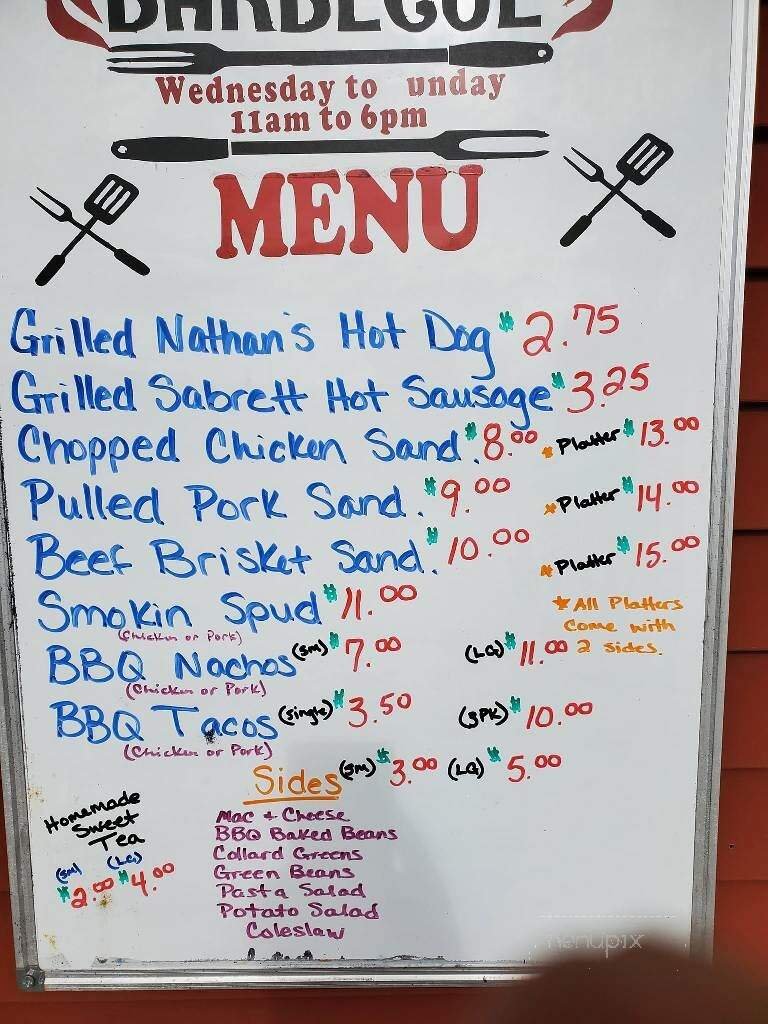 BARBECUE
Wednesday to unday
11am to 6pm
MENU
Grilled Nathan's Hot Dog $2.75
Grilled Sabrett Hot Sausage $3.25
Chopped Chicken Sand. $8.00 * Platter $13.00
Pulled Pork Sand. $9.00 * Platter $14.00
Beef Brisket Sand. $10.00 * Platter $15.00
Smokin Spud $11.00
(Chicken or Pork)
* All Platters
come with
2 sides.
BBQ Nachos (sm) $7.00 (LG) $11.00
(Chicken or Pork)
BBQ Tacos (single) $3.50 (3PK) $10.00
(Chicken or Pork)
Sides (sm) $3.00 (LG) $5.00
Mac + Cheese
BBQ Baked Beans
Collard Greens
Green Beans
Pasta Salad
Potato Salad
Coleslaw
Homemade
Sweet
Tea
(sm) (LG)
$2.00 $4.00
menupix